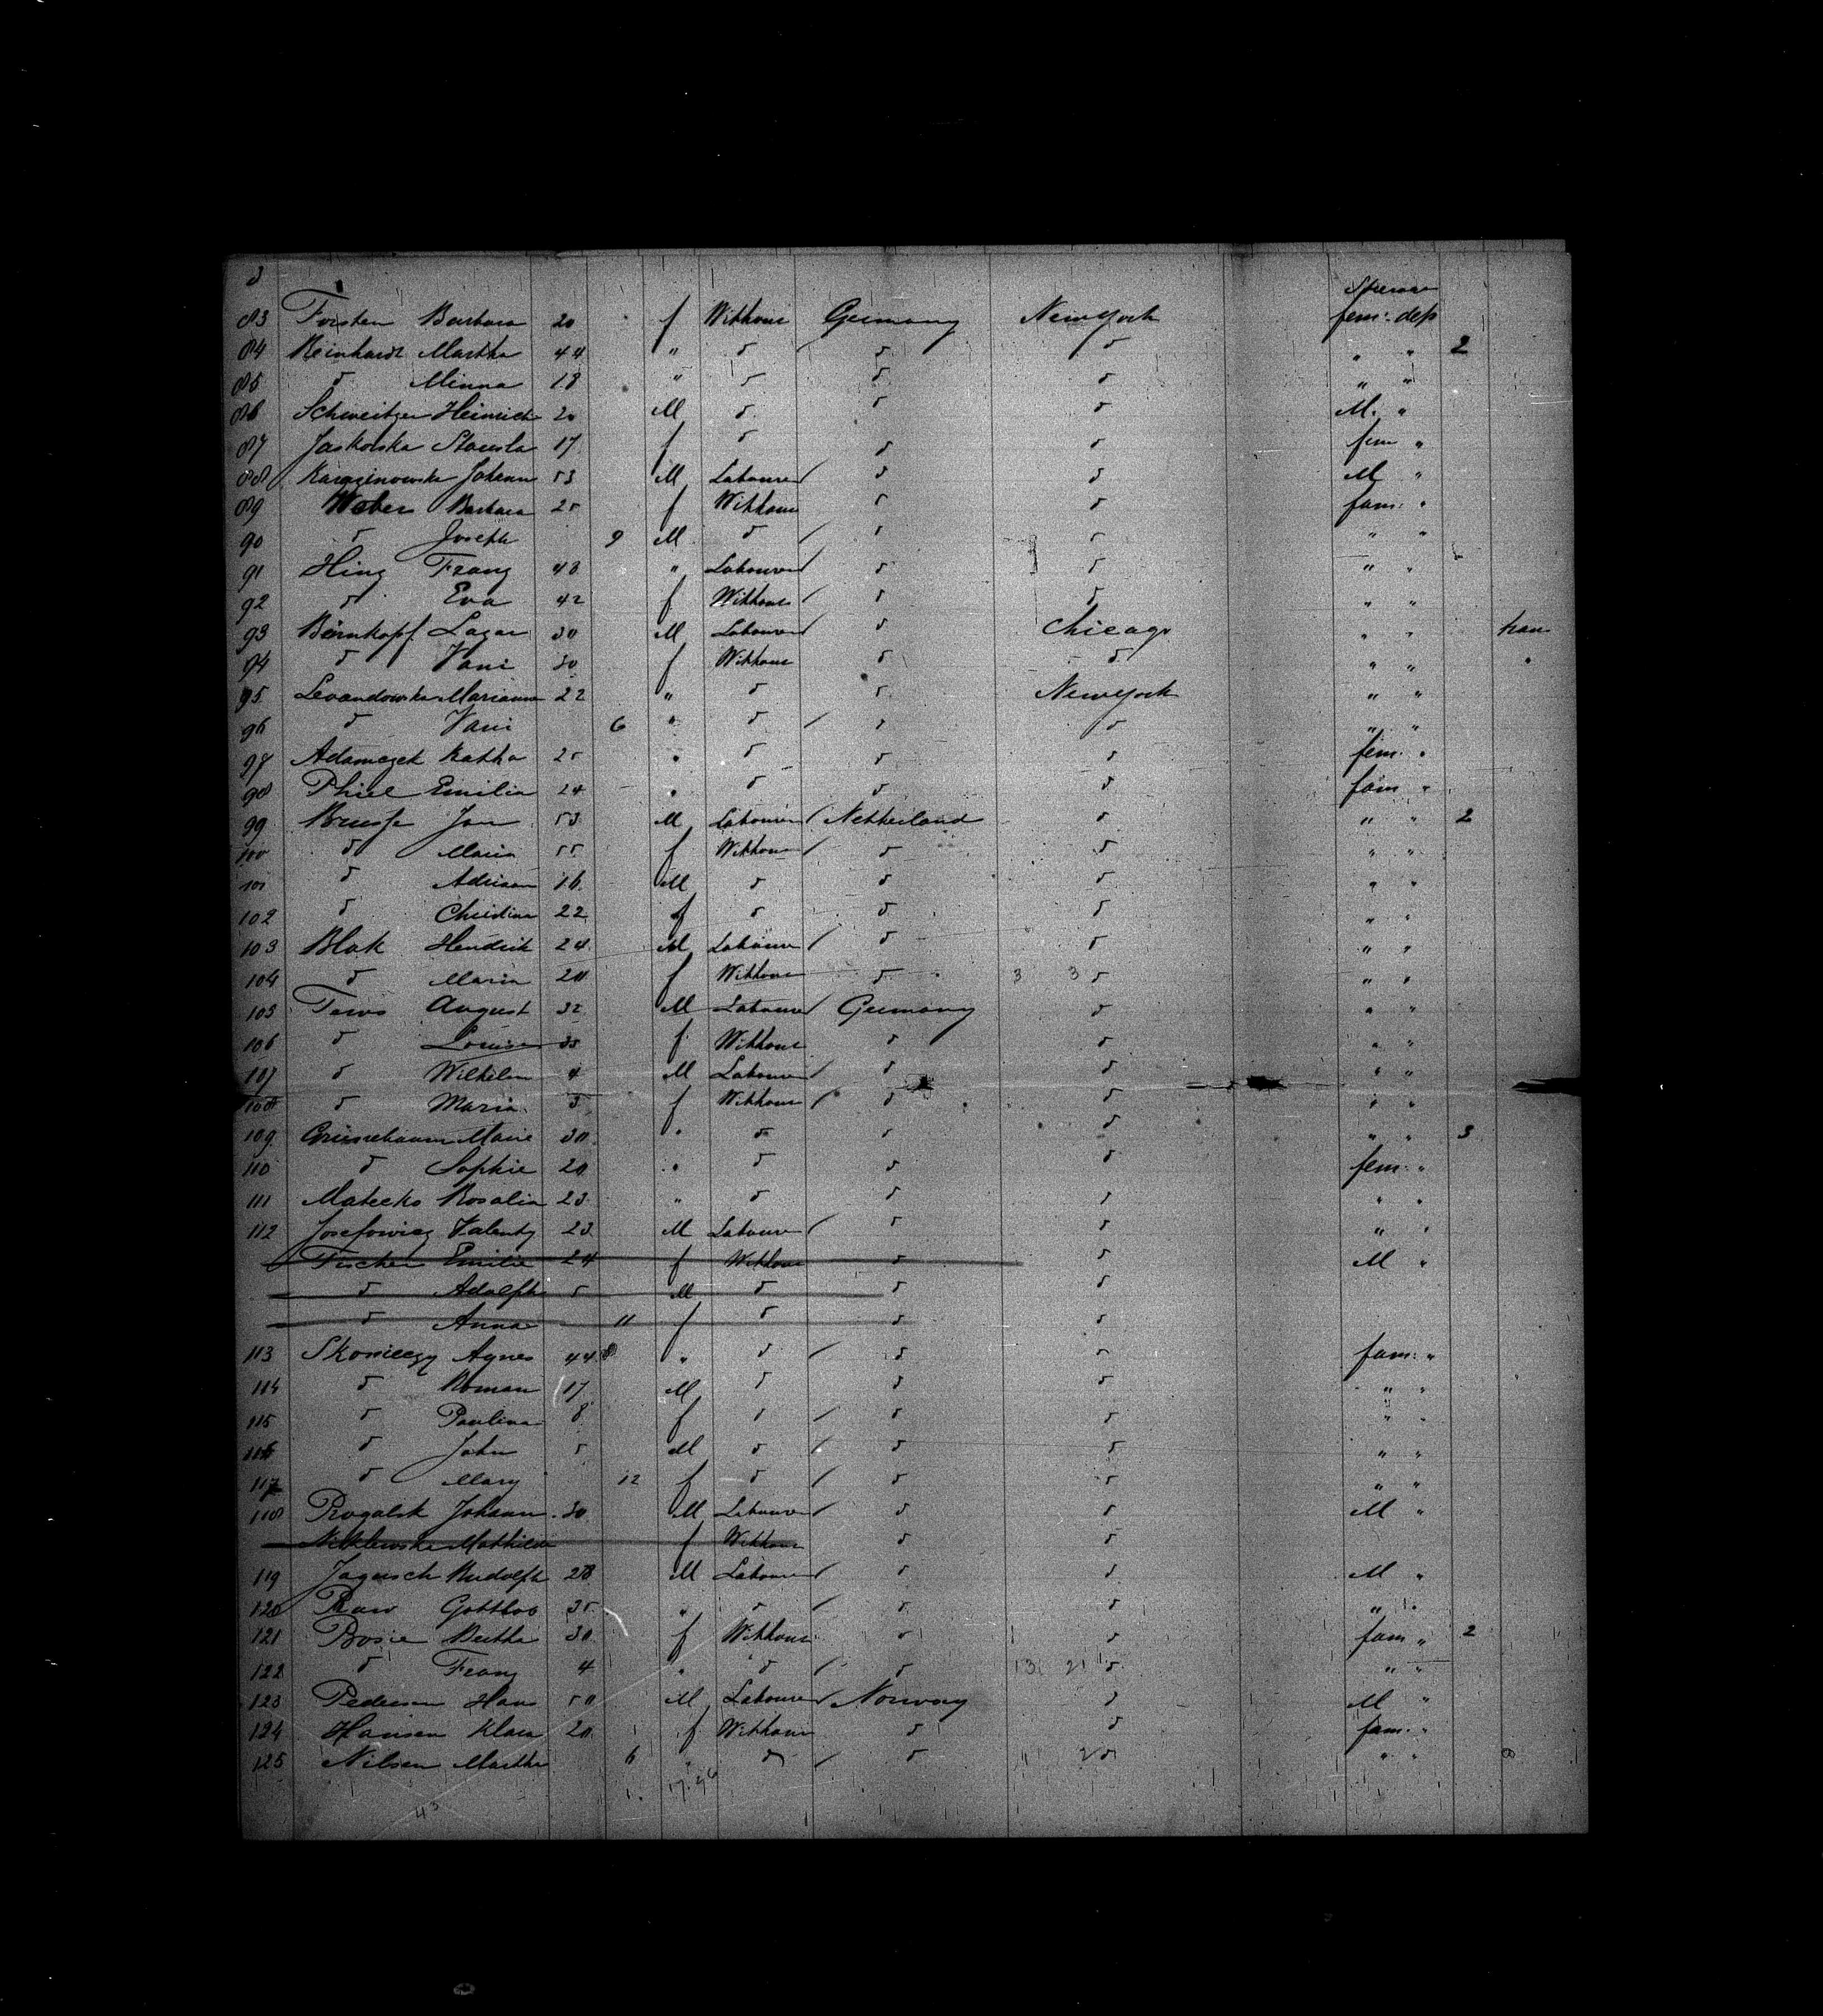 3
Steerage
83 Forsten Barbara 20 f Without Germany New York fem: dep
84 Reinhardt Martha 44 " d d d " " 2
85 d Minna 18 " d d d " "
86 Schweitzer Heinrich 20 M d d d M. "
87 Jaskolska Stanisla 17 f d d d fem "
88 Johann 53 M Labourer d d M "
89 Weber Barbara 25 f Without d d fam: "
90 d Joseph 9 M d d d " "
91 Hinz Franz 48 " Labourer d d " "
92 d Eva 42 f Without d d " "
93 Bärnkopf Lazar 30 M Labourer d Chicago " " tran
94 d 30 f Without d d " " "
95 Levandowska Marianna 22 " d d New York " "
96 d 6 " d d d " "
97 Adamczek Katha 25 " d d d fem: "
98 Thiel Emilia 24 " d d d fam "
99 Jan 53 M Labourer Netherland d " " 2
100 d Maria 55 f Without d d " "
101 d Adriaan 16 M d d d " "
102 d Christina 22 f d d d " "
103 Blok Hendrik 24 M Labourer d d " "
104 d Maria 20 f Without d 3 3 d " "
105 August 32 M Labourer Germany d " "
106 d Louise 35 f Without d d " "
107 d Wilhelm 4 M Labourer d d " "
108 d Maria 3 f Without d d " "
109 Marie 30 " d d d " " 3
110 d Sophie 20 " d d d fem: "
111 Matecko Rosalia 23 " d d d " "
112 Josefowicz Valenty 23 M Labourer d d " "
Fischer Emilie 24 f Without d d M "
d Adolph 5 M d d d
d Anna 11 f d d d
113 Agnes 44 " d d d fam: "
114 d Roman 17 M d d d " "
115 d Paulina 8 f d d d " "
116 d John 5 M d d d " "
117 d Mary 12 f d d d " "
118 Rogalsk Johann 30 M Labourer d d M "
Mathilde f Without d d
119 Jagusch Rudolph 28 M Labourer d d M "
120 Gottlob 35 " d d d " "
121 Bertha 30 f Without d d fam " 2
122 d Franz 4 " d d d " "
123 Pedersen Hans 50 M Labourer Norway d M "
124 Hansen Klara 20 f Without d d fam: "
125 Nilsen Martha 6 " d d d " "
43